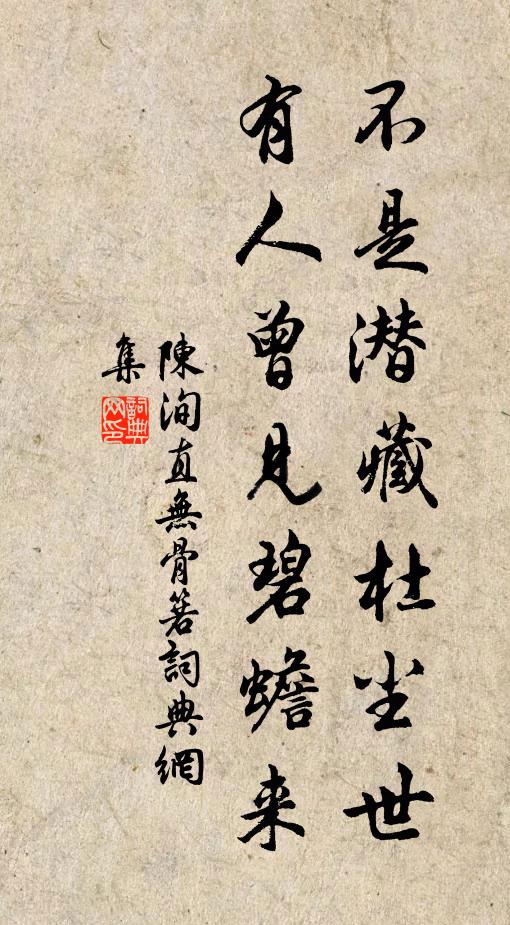 不是潜藏杜尘世
有人曾見碧蟾来
陳洵直無骨箬詞典網
集
詞典
网印